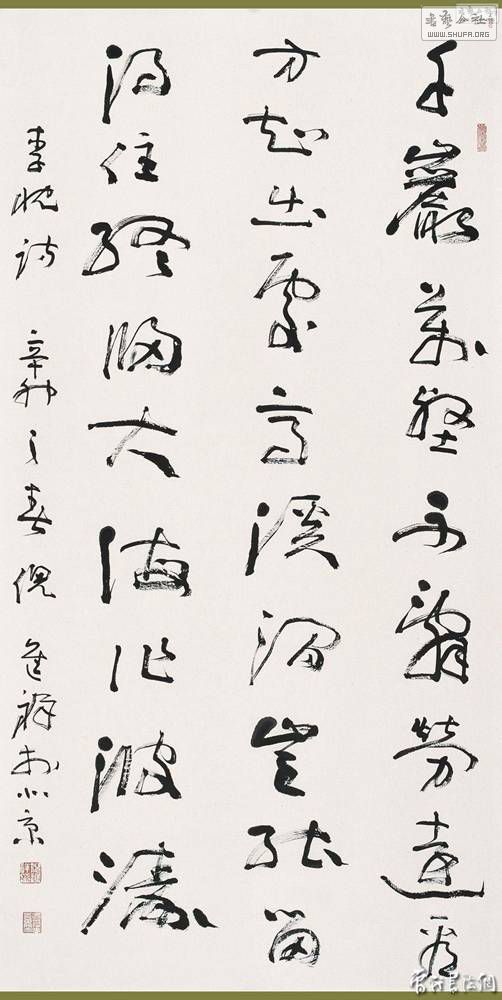 千巖萬壑不辭勞遠看
方知出處高溪澗豈能留
得住終歸大海作波濤
李忱詩 辛卯之春倪進祥於北京
書藝公社
WWW.SHUFA.ORG